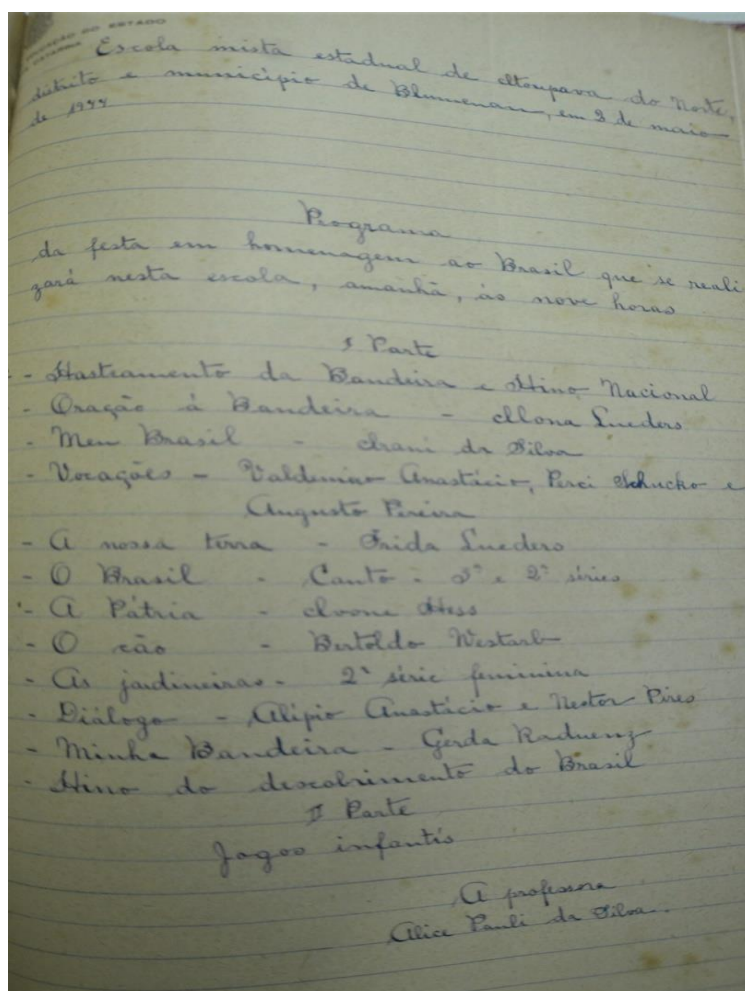 EDUCAÇÃO DO ESTADO
CATARINA
Escola mista estadual de Itoupava do Norte,
distrito e município de Blumenau, em 2 de maio
de 1944
Programa
da festa em homenagem ao Brasil que se reali
zará nesta escola, amanhã, às nove horas
I Parte
- Hasteamento da Bandeira e Hino Nacional
- Oração à Bandeira - Mona Lueders
- Meu Brasil - Irani da Silva
- Vocações - Valdemiro Anastácio, Perci Schucko e
Augusto Pereira
- A nossa terra - Frida Lueders
- O Brasil - Canto - 3ª e 2ª séries
- A Pátria - Ivone Hess
- O cão - Bertoldo Westarb
- As jardineiras - 2ª série feminina
- Diálogo - Alípio Anastácio e Nestor Pires
- Minha Bandeira - Gerda Raduenz
- Hino do descobrimento do Brasil
II Parte
Jogos infantis
A professora
Alice Pauli da Silva.